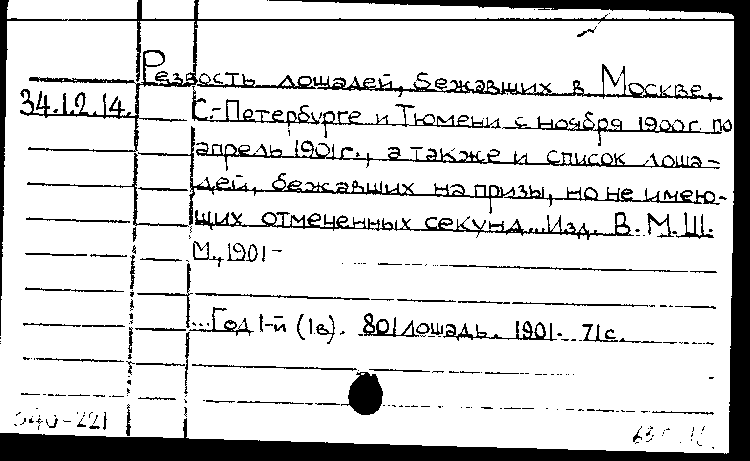 Резвость лошадей, бежавших в Москве,
34.12.14.
С.-Петербурге и Тюмени с ноября 1900г. по
апрель 1901г., а также и список лоша-
дей, бежавших на призы, но не имею-
щих отмененных секунд... Изд. В. М. Ш.
М., 1901-
...Год 1-й (1в). 801 лошадь. 1901. 71с.
340-221